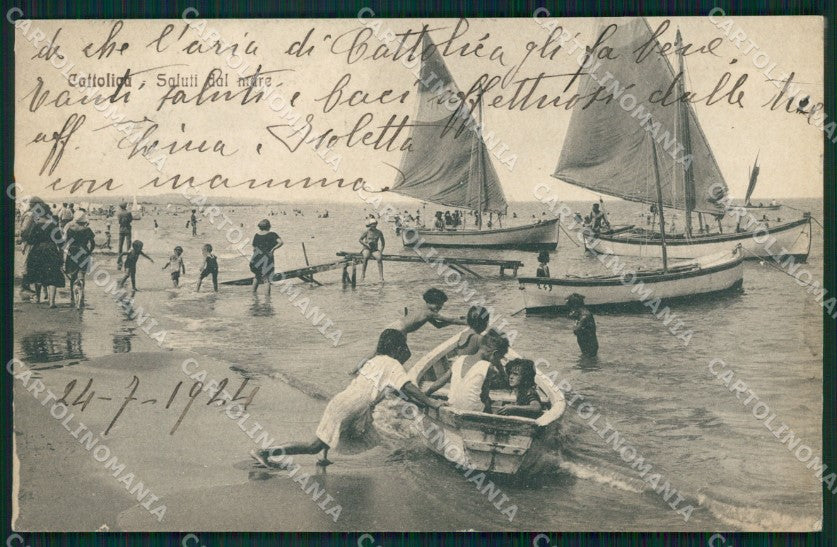 de che l'aria di Cattolica gli fa bene.
Cattolica - Saluti dal mare
Tanti saluti e baci affettuosi dalle tue
aff. Gina e Isoletta
con mamma
24-7-1924
CARTOLINOMANIA